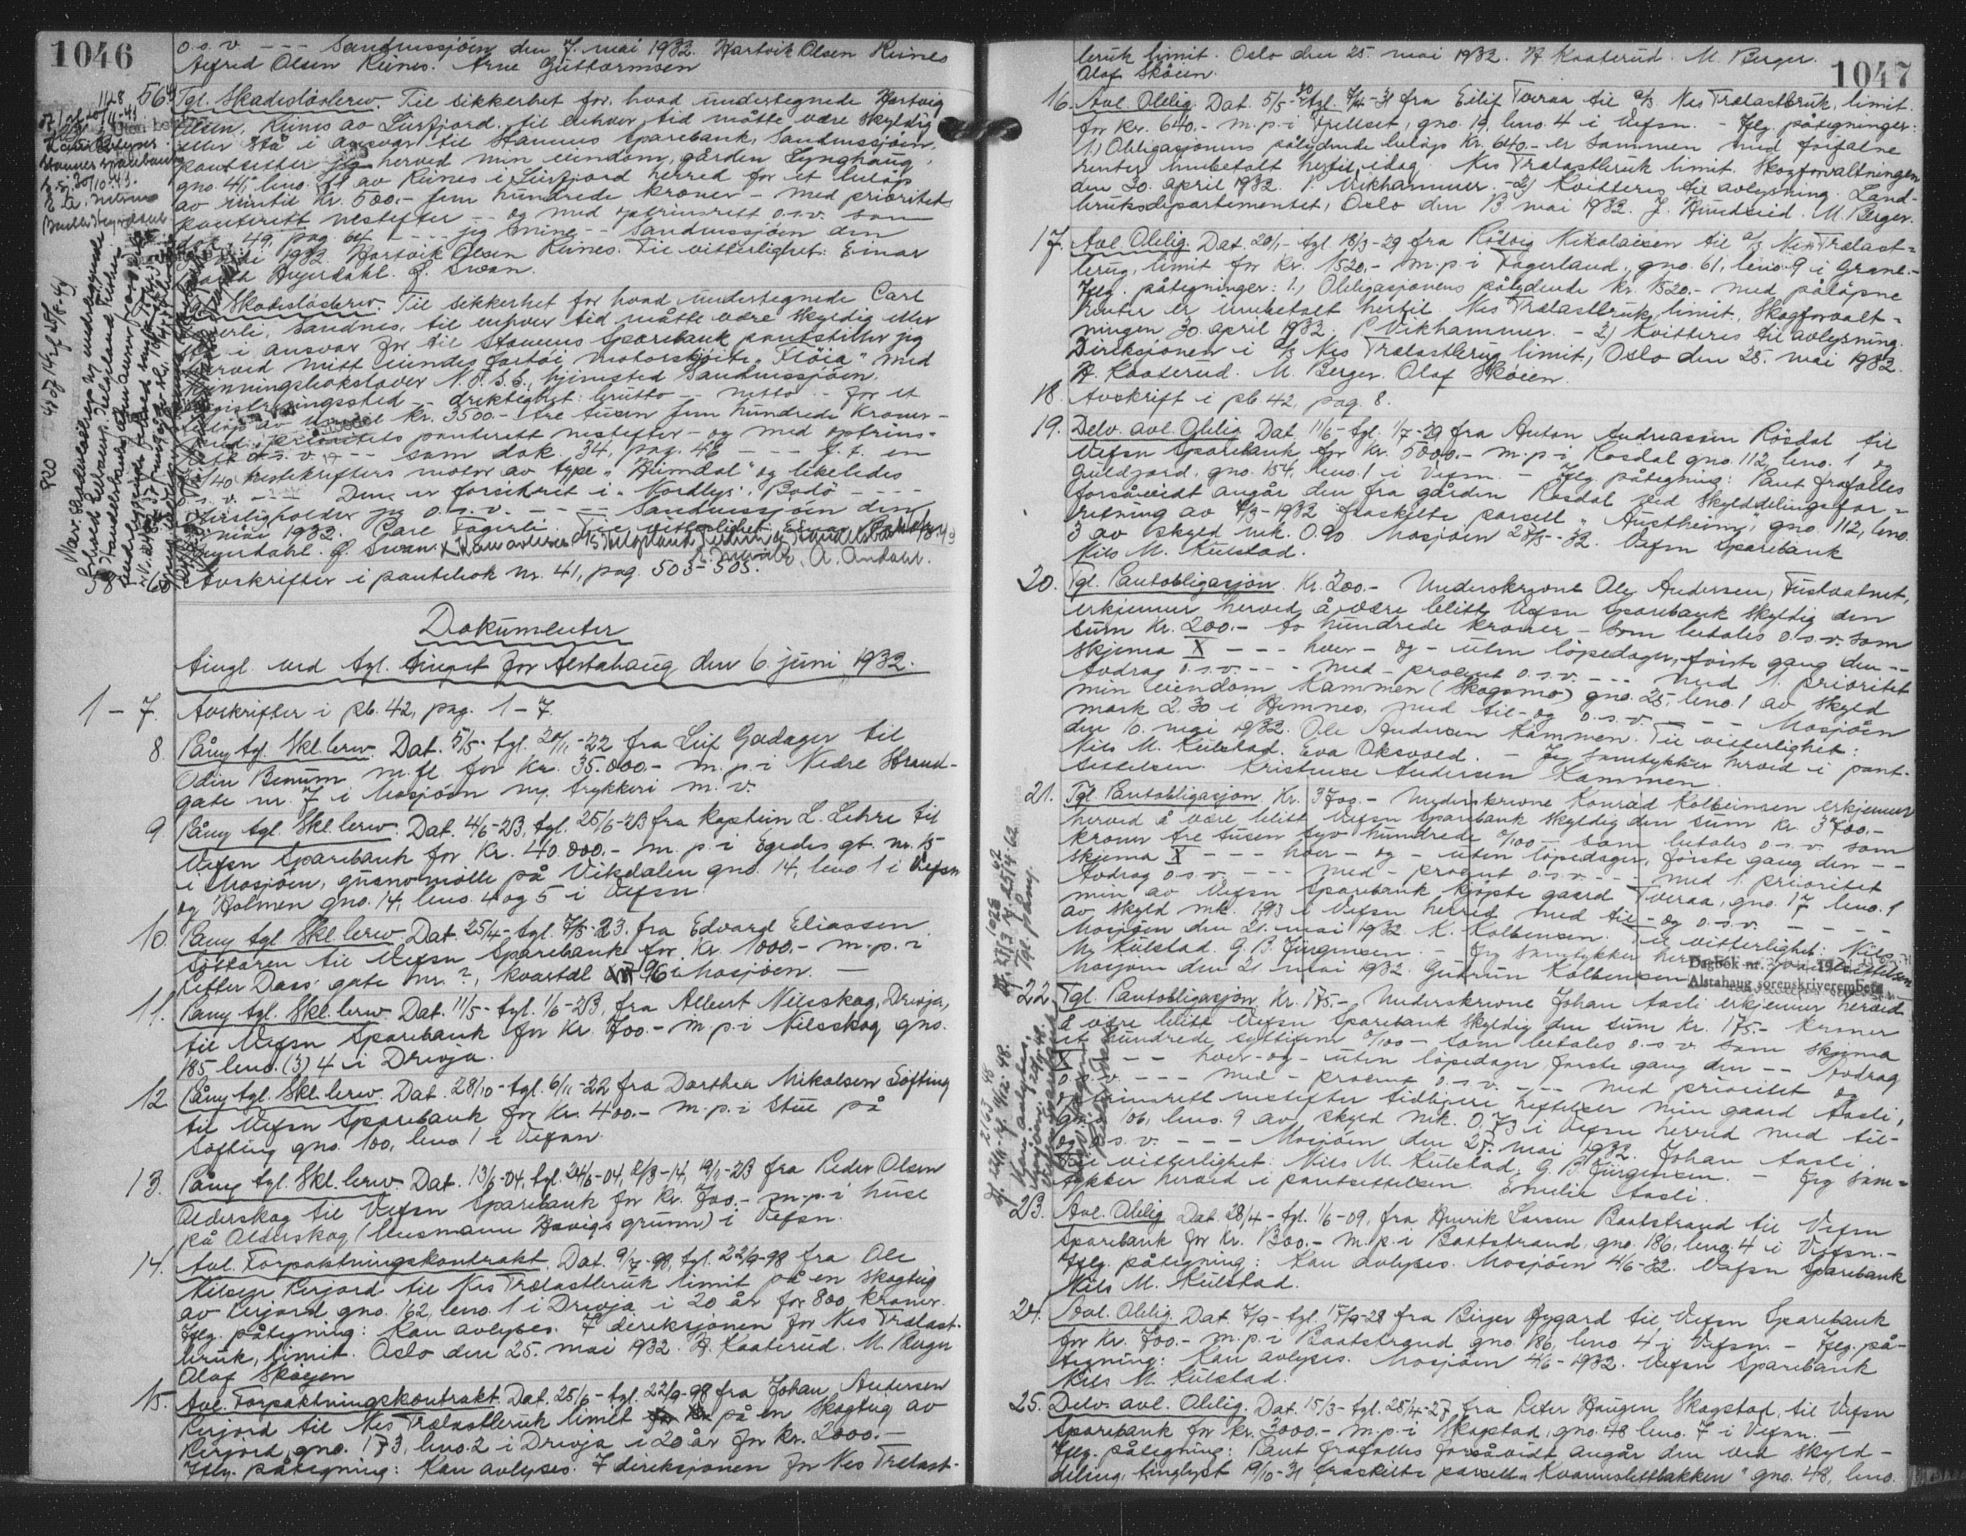 1046
o.s.v. - - - Sandnessjøen den 7. mai 1932. Hartvik Olsen Kvines
Alfred Olsen Kvines. Arne Guttormsen
56. Tgl. Skadesløsbrev. Til sikkerhet for, hvad undertegnede Hartvig
Olsen, Kvines av Leirfjord, til enhver tid måtte være skyldig
eller stå i ansvar til Stamnes Sparebank, Sandnessjøen,
pantsetter jeg herved min eiendom, gården Lynghaug,
gno. 41, bno. av Kvines i Leirfjord herred for et beløp
av inntil Kr. 500.- fem hundrede kroner - med prioritets
panterett nestefter - og med optrinsrett o.s.v. som
dok. 49, pag. 64 - - - jeg mine - - Sandnessjøen den
mai 1932. Hartvik Olsen Kvines. Til vitterlighet: Einar
Hagerdahl. J. Swan.
Tgl. Skadesløsbrev. Til sikkerhet for hvad undertegnede Carl
Fagerli, Sandnes, til enhver tid måtte være skyldig eller
stå i ansvar for til Stamnes Sparebank pantstiller jeg
herved mitt eiendes fartøi, motorskjøite "Fløia" med
kjenningsbokstaver hjemsted Sandnessjøen,
registreringssted - drektighet: brutto - netto - for et
beløp av inntil kr. 3500.- tre tusen fem hundrede kroner -
med prioritets panterett nestefter - og med optrins-
rett o.s.v. - - som dok. 34, pag. 46 - - - en
40 hestekrefters motor av type "Heimdal" og likeledes
o.s.v. - - - Den er forsikret i "Nordlys", Bodø - - -
jeg o.s.v. - - - Sandnessjøen den
mai 1932. Carl Fagerli. Til vitterlighet: Einar
Hagerdahl. J. Swan.
60 Avskrifter i pantebok nr. 41, pag. 503-505.
Dokumenter
tingl. ved tgl. tinget for Alstahaug den 6. juni 1932.
1 - 7. Avskrifter i pb. 42, pag. 1-7.
8 Påny tgl. Skl.brev. Dat. 5/5- tgl. 20/11-22 fra Leif Godager til
Odin Benum m.fl. for kr. 35.000.- m.p. i Nedre Strand-
gate nr. 7 i Mosjøen ny trykkeri m.v.
9 Påny tgl. Skl.brev. Dat. 4/6-23, tgl. 25/6-23 fra kaptein L. Lehre til
Vefsn Sparebank for Kr. 40.000.- m.p. i Egedes gt. nr. 15
i Mosjøen, guanomølle på Vikdalen gno. 14, bno 1 i Vefsn
og Holmen gno. 14, bno. 4 og 5 i Vefsn.
10. Påny tgl. Skl.brev. Dat. 25/4- tgl. 7/5-23. fra Edvard Eliassen
Søttaren til Vefsn Sparebank for Kr. 1000.- m.p. i
Petter Dass' gate nr. ?, kvartal 96 i Mosjøen. -
11. Påny tgl. Skl.brev. Dat. 11/5- tgl. 1/6-23. fra Albert Nilsskog, Drevja,
til Vefsn Sparebank for Kr. 700.- m.p. i Nilsskog gno.
185 bno. (3) 4 i Drevja.
12 Påny tgl. Skl.brev. Dat. 28/10- tgl. 6/11-22 fra Dorthea Nikolsen Søfting
til Vefsn Sparebank for Kr. 400.- m.p. i Stue på
Søfting gno. 100, bno. 1 i Vefsn.
13. Påny tgl. Skl.brev. Dat. 13/6-04, tgl. 24/6-04, 2/3-14, 19/1-23 fra Peder Olsen
Olderskog til Vefsn Sparebank for Kr. 700.- m.p. i huse
på Olderskog (Husmann Havigs grunn) i Vefsn.
14. Avl. Forpaktningskontrakt. Dat. 9/7-98, tgl. 22/9-98 fra Ole
Nilsen Perjord til Nes Trælastbruk limit på en skogteig
av Perjord gno. 162, bno. 1 i Drevja i 20 år for 800 kroner.
Iflg. påtegning: Kan avlyses. I direksjonen for Nes Trælast-
bruk, limit. Oslo den 25. mai 1932. H. Kaaterud. M. Berger
Olaf Skøien
15. Avl. Forpaktningskontrakt Dat. 25/6- tgl. 22/9-98 fra Johan Andersen
Perjord til Nes Trælastbruk limit på en skogteig av
Perjord, gno. 173, bno. 2 i Drevja i 20 år for kr. 2000.-
Iflg. påtegning: Kan avlyses. I direksjonen for Nes Trælast-
1047
bruk limit. Oslo den 25. mai 1932. H Kaaterud. M. Berger.
Olaf Skøien.
16. Avl. Oblig. Dat. 5/5-30 tgl. 7/4-31 fra Eilif Tveraa til A/S Nes Trælastbruk, limit.
for Kr. 640.- m.p. i Trellset, gno. 19, bno. 4 i Vefsn. - Iflg. påtegninger:
1) Obligasjonens pålydende beløp Kr. 640.- er sammen med forfalne
renter innbetalt hertil idag. Nes Trælastbruk limit. Skogforvaltningen
den 30. april 1932. P. Vikhammer. - 2) Kvitteres til avlysning. Land-
bruksdepartementet, Oslo den 13 mai 1932. J. Hundseid. M. Berger.
17. Avl. Oblig. Dat. 20/1- tgl. 18/3-29 fra Rösvig Nikolaisen til A/S Nes Trælast-
brug, limit for Kr. 1520.- m.p. i Fagerland, gno. 61, bno. 9 i Grane.-
Iflg. påtegninger: 1.) Obligasjonens pålydende kr. 1520.- med påløpne
renter er innbetalt hertil. Nes Trælastbruk limit. Skogforvalt-
ningen 30 april 1932. P Vikhammer. - 2) Kvitteres til avlysning.
Direksjonen i A/S Nes Trælastbrug limit, Oslo den 25. mai 1932.
H. Kaaterud. M. Berger. Olaf Skøien.
18. Avskrift i pb. 42, pag. 8.
19. Delv. avl. Oblig. Dat. 11/6- tgl. 1/7-29 fra Anton Andreassen Rösdal til
Vefsn Sparebank for Kr. 5000.- m.p. i Rosdal gno. 112, bno. 1 og
Guldjord, gno. 154, bno. 1 i Vefsn. - Iflg. påtegning: Pant frafalles
forsåvidt angår den fra gården Rosdal ved skylddelingsfor-
retning av 7/3-1932 fraskilte parsell "Austheim", gno. 112, bno.
3 av skyld mk. 0.90 Mosjøen 27/5-32. Vefsn Sparebank
Nils M. Kulstad.
20. Tgl. Pantobligasjon. Kr. 200.- Underskrevne Ole Andersen, Fustvatnet,
erkjenner herved å være blitt Vefsn Sparebank skyldig den
sum Kr. 200.- to hundrede kroner - som betales o.s.v. som
skjema X - - - hver - og - uten løpedager, første gang den - -
Avdrag o.s.v. - - - med - procent o.s.v. - - - med 1. prioritet
min eiendom Kammen (Skogsmo) gno. 25, bno. 1 av skyld
mark 2.30 i Hemnes, med til- og o.s.v. - - - Mosjøen
den 10. mai 1932. Ole Andersen Kammen. Til vitterlighet:
Nils M. Kulstad. Eva Oksvold. - Jeg samtykker herved i pant-
settelsen. Kristense Andersen Kammen.
21. Tgl. Pantobligasjon Kr. 3700.- Underskrevne Konrad Kolbeinsen erkjenner
herved å være blitt Vefsn Sparebank skyldig den sum kr. 3700.-
kroner tre tusen syv hundrede 0/100 - som betales o.s.v. som
skjema X - - - hver - og - uten løpedager, første gang den - -
Avdrag o.s.v. - - - med - procent o.s.v. - - - med 1. prioritet
min av Vefsn Sparebank kjøpte gaard Tveraa, gno. 17 bno. 1
av skyld mk. 1.93 i Vefsn herred med til- og o.s.v. - - - -
Mosjøen den 21. mai 1932. K. Kolbeinsen. Til vitterlighet: Nils
M. Kulstad. G. B. Jürgensen. Jeg samtykker herved i pantsettelsen
Mosjøen den 21. mai 1932. Gudrun Kolbeinsen
Dagbok nr.
Alstahaug sorenskriverembete
22. Tgl. Pantobligasjon. Kr. 175.- Underskrevne Johan Aasli erkjenner herved
å være blitt Vefsn Sparebank skyldig den sum kr. 175.- kroner
et hundrede syttifem 0/100 - som betales o.s.v. som skjema
X - - - hver - og - uten løpedager første gang den - - Avdrag
o.s.v. - - - med - procent o.s.v. - - - med prioritet og
optrinsrett nestefter tidligere heftelser min gaard Aasli,
gno. 106, bno. 9 av skyld mk. 0.73 i Vefsn herred med til-
og o.s.v. - - - Mosjøen den 27. mai 1932. Johan Aasli.
Til vitterlighet: Nils M. Kulstad. G. B. Jürgensen. - Jeg sam-
tykker herved i pantsettelsen. Emelie Aasli.
23. Avl. Oblig. Dat. 28/4- tgl. 1/6-09, fra Henrik Larsen Baatstrand til Vefsn
Sparebank for Kr. 1300.- m.p. i Baatstrand, gno. 186, bno. 4 i Vefsn.-
Iflg. påtegning: Kan avlyses. Mosjøen 4/6-32. Vefsn Sparebank
Nils M. Kulstad.
24. Avl. Oblig. Dat. 7/9- tgl. 17/9-28 fra Birger Øygard til Vefsn Sparebank
for Kr. 700.- m.p. i Baatstrand gno. 186, bno. 4 i Vefsn. - Iflg. på-
tegning: Kan avlyses. Mosjøen 4/6-1932. Vefsn Sparebank
Nils M. Kulstad.
25. Delv. avl. Oblig. Dat. 15/3- tgl. 28/4-27 fra Peter Haugen Skogstad, til Vefsn
Sparebank for kr. 3000.- m.p. i Skogstad, gno. 48 bno. 7 i Vefsn. -
Iflg. påtegning: Pant frafalles forsåvidt angår den ved skyld-
deling, tinglyst 19/10-31 fraskilte parsell "Kvannslettbakken" gno. 48, bno.